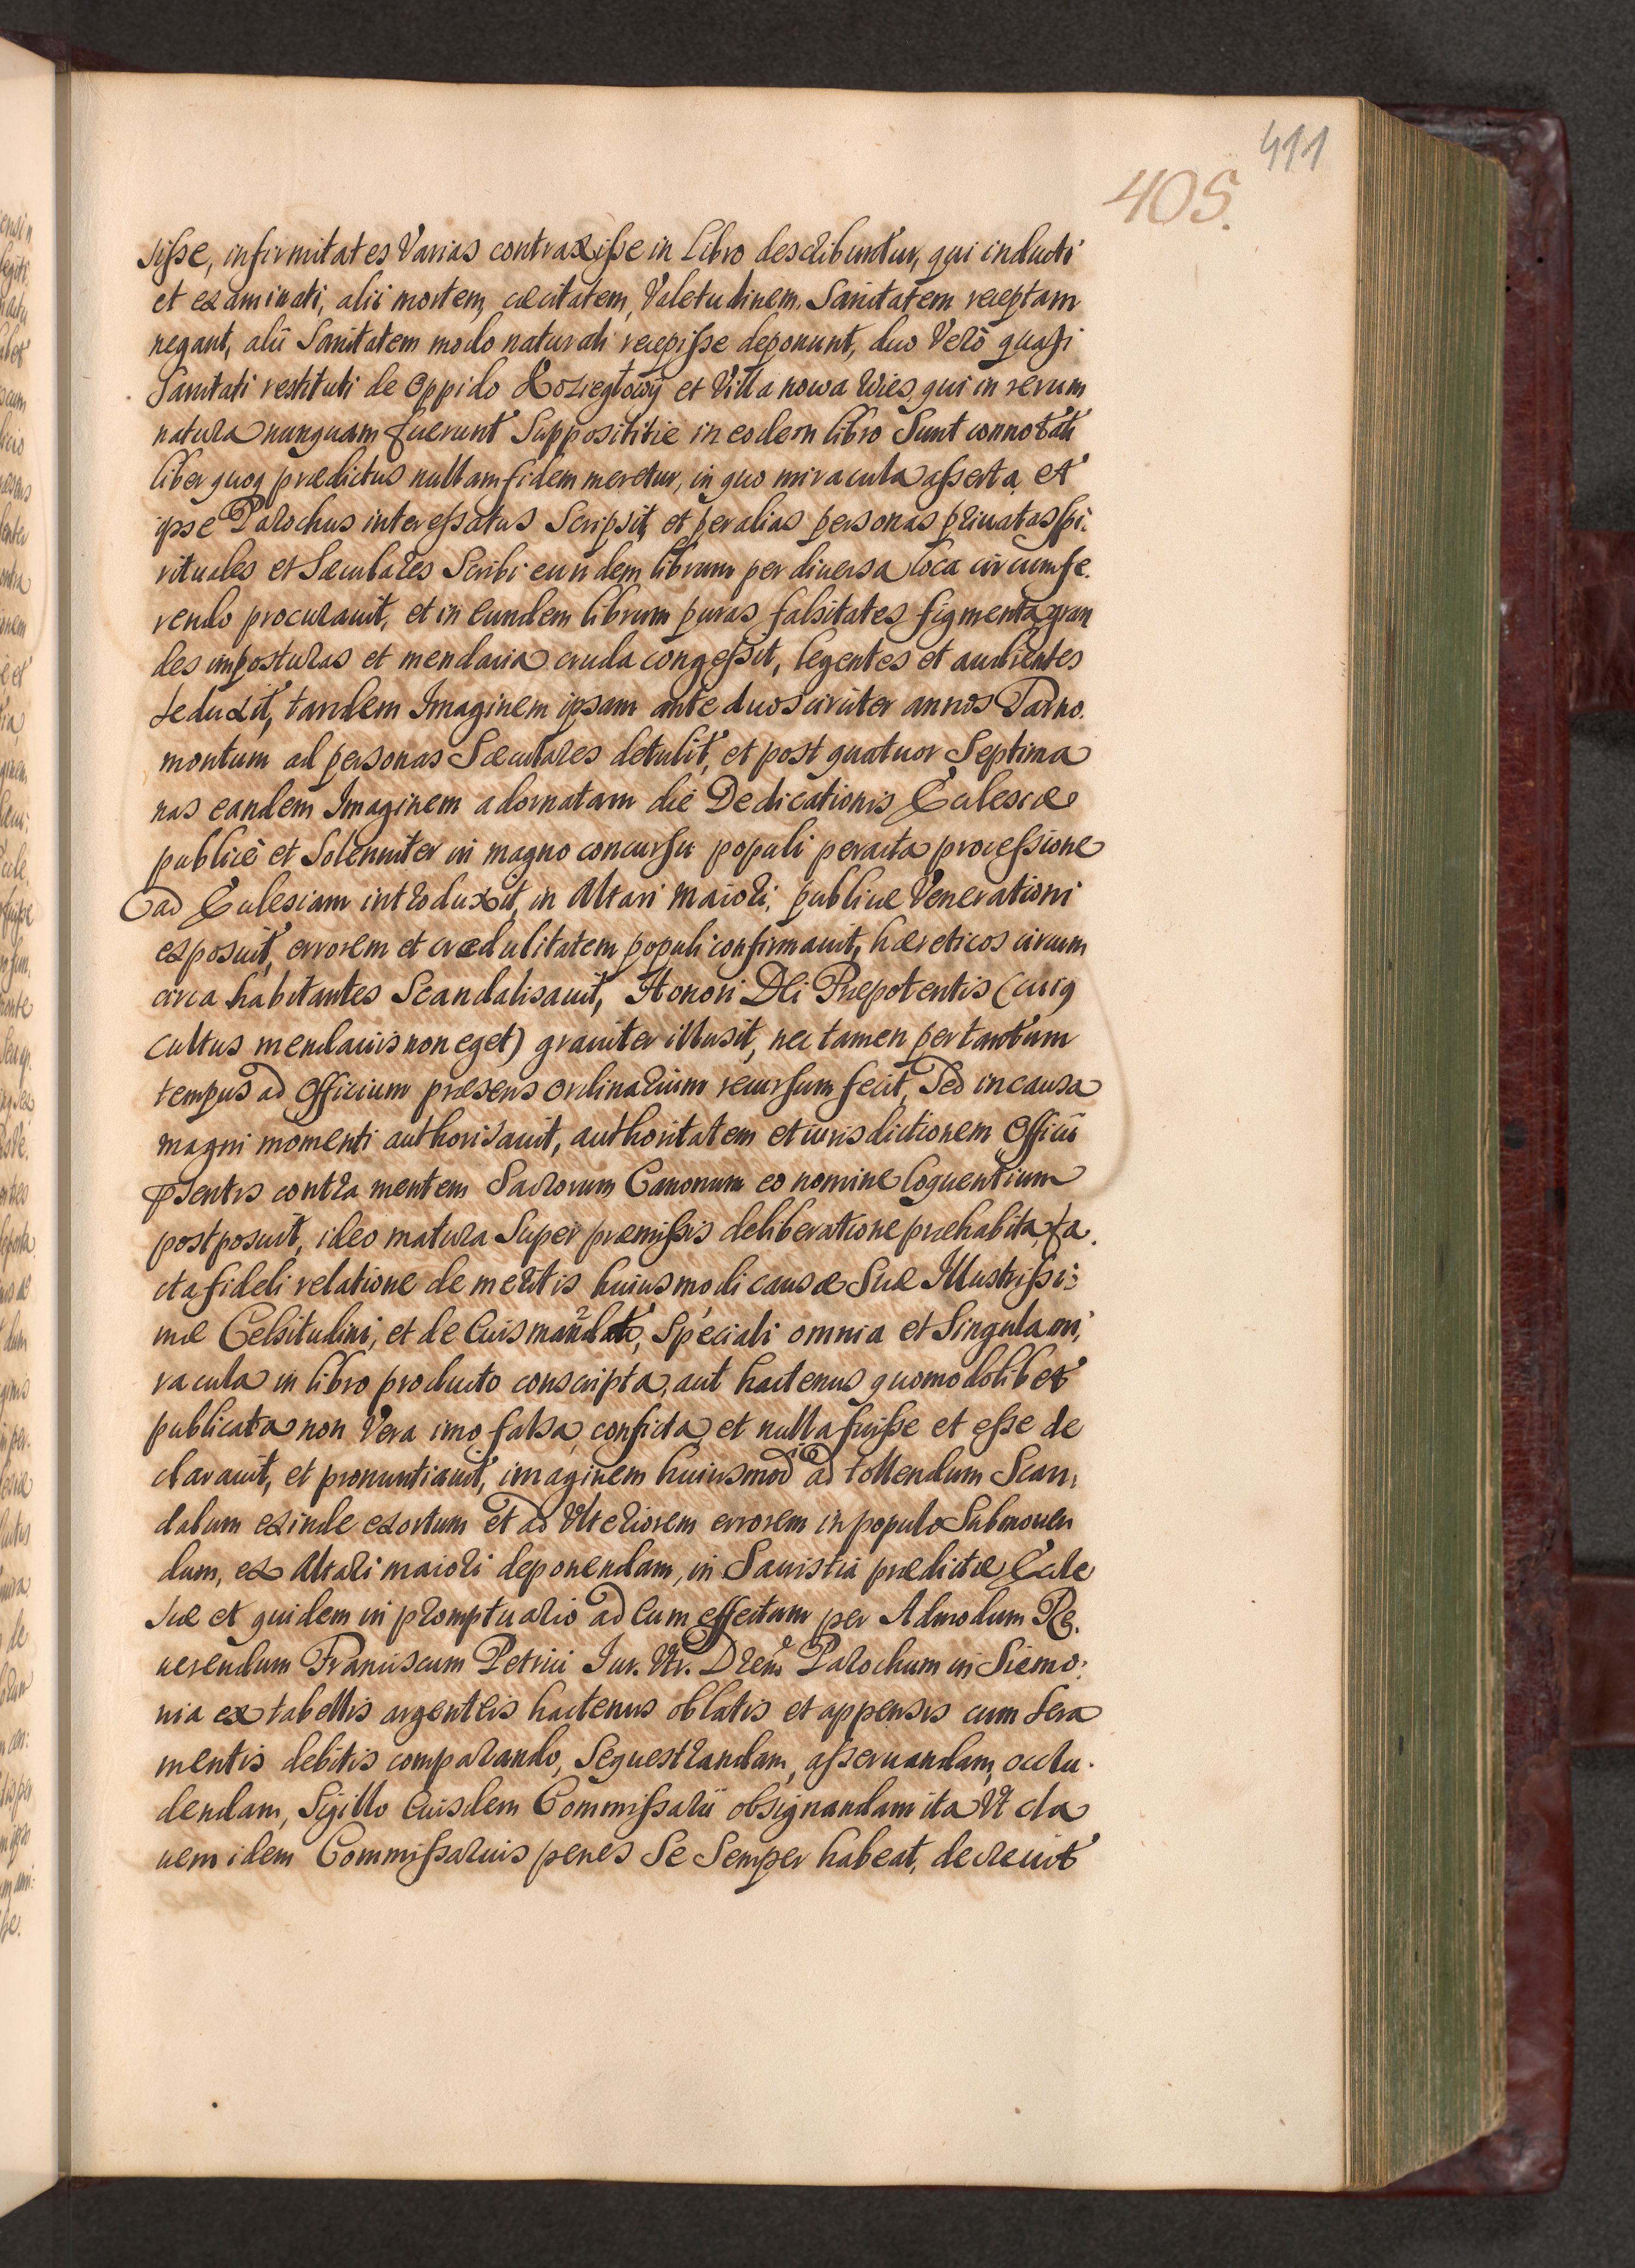 411
405.
sisse, infirmitates Varias contraxisse in Libro describuntur, qui inducti
et examinati, alii mortem, cæcitatem, Valetudinem, Sanitatem receptam
negant, alii Sanitatem modo naturali recepisse deponunt, duo Verò quasi
Sanitati restituti de Oppido Kozieglowÿ et Villa nowa Wies, qui in rerum
natura nunquam fuerunt Supposititie in eodem libro Sunt connotati
liber quoq prædictus nullam fidem meretur, in quo miracula asserta et
ipse Parochus interessatus Scripsit, et per alias personas priuatas spi:
rituales et Sæculares Scribi eundem librum per diuersa loca circumfe.
rendo procurauit, et in eundem librum puras falsitates figmenta gran
des imposturas et mendacia cruda congessit, legentes et audientes
seduxit, tandem Imaginem ipsam ante duos circiter annos Tarno.
montum ad personas Sæculares detulit, et post quatuor Septima
nas eandem Imaginem adornatam die Dedicationis Ecclesiæ
publicè et Solenniter in magno concursu populi peracta processione
ad Ecclesiam introduxit, in Altari maiori, publicæ Venerationi
exposuit, errorem et crædulitatem populi confirmauit, hæreticos circum
circa habitantes Scandalisauit, Honori DEi Præpotentis (cuig
cultus mendaciis non eget) grauiter illusit, nec tamen per tantum
tempus ad Officium præsens ordinarium recursum fecit, Sed in causa
magni momenti authorisauit, authoritatem et iurisdictionem Officii
psentis contra mentem Sacrorum Canonum eo nomine loquentium
postposuit, ideo matura Super præmissis deliberatione præhabita, fa.
cta fideli relatione de meritis huiusmodi causæ Suæ Illustrissi:
mæ Celsitudini, et de Euis mandato, Speciali omnia et Singula mi,
racula in libro producto conscripta, aut hactenus quomodolibet
publicata non Vera imo falsa, conficta et nulla fuisse et esse de
clarauit, et pronuntiauit, imaginem huiusmodi ad tollendum Scan,
dalum exinde exortum et ad Vlteriorem errorem in populo Submouen
dum, ex Altari maiori deponendam, in Sacristia prædictæ Eccle
siæ et quidem in promptuario ad Eum effectum per Admodum Re.
uerendum Franciscum Petrici Iur. Vtr. Drem Parochum in Siemo:
nia ex tabellis argenteis hactenus oblatis et appensis cum Sera
mentis debitis comparando, Sequestrandam, asseruandam, occlu.
dendam, Sigillo Euisdem Commissarii obsignandam ita Vt cla
uem idem Commissarius penes Se Semper habeat, decreuit